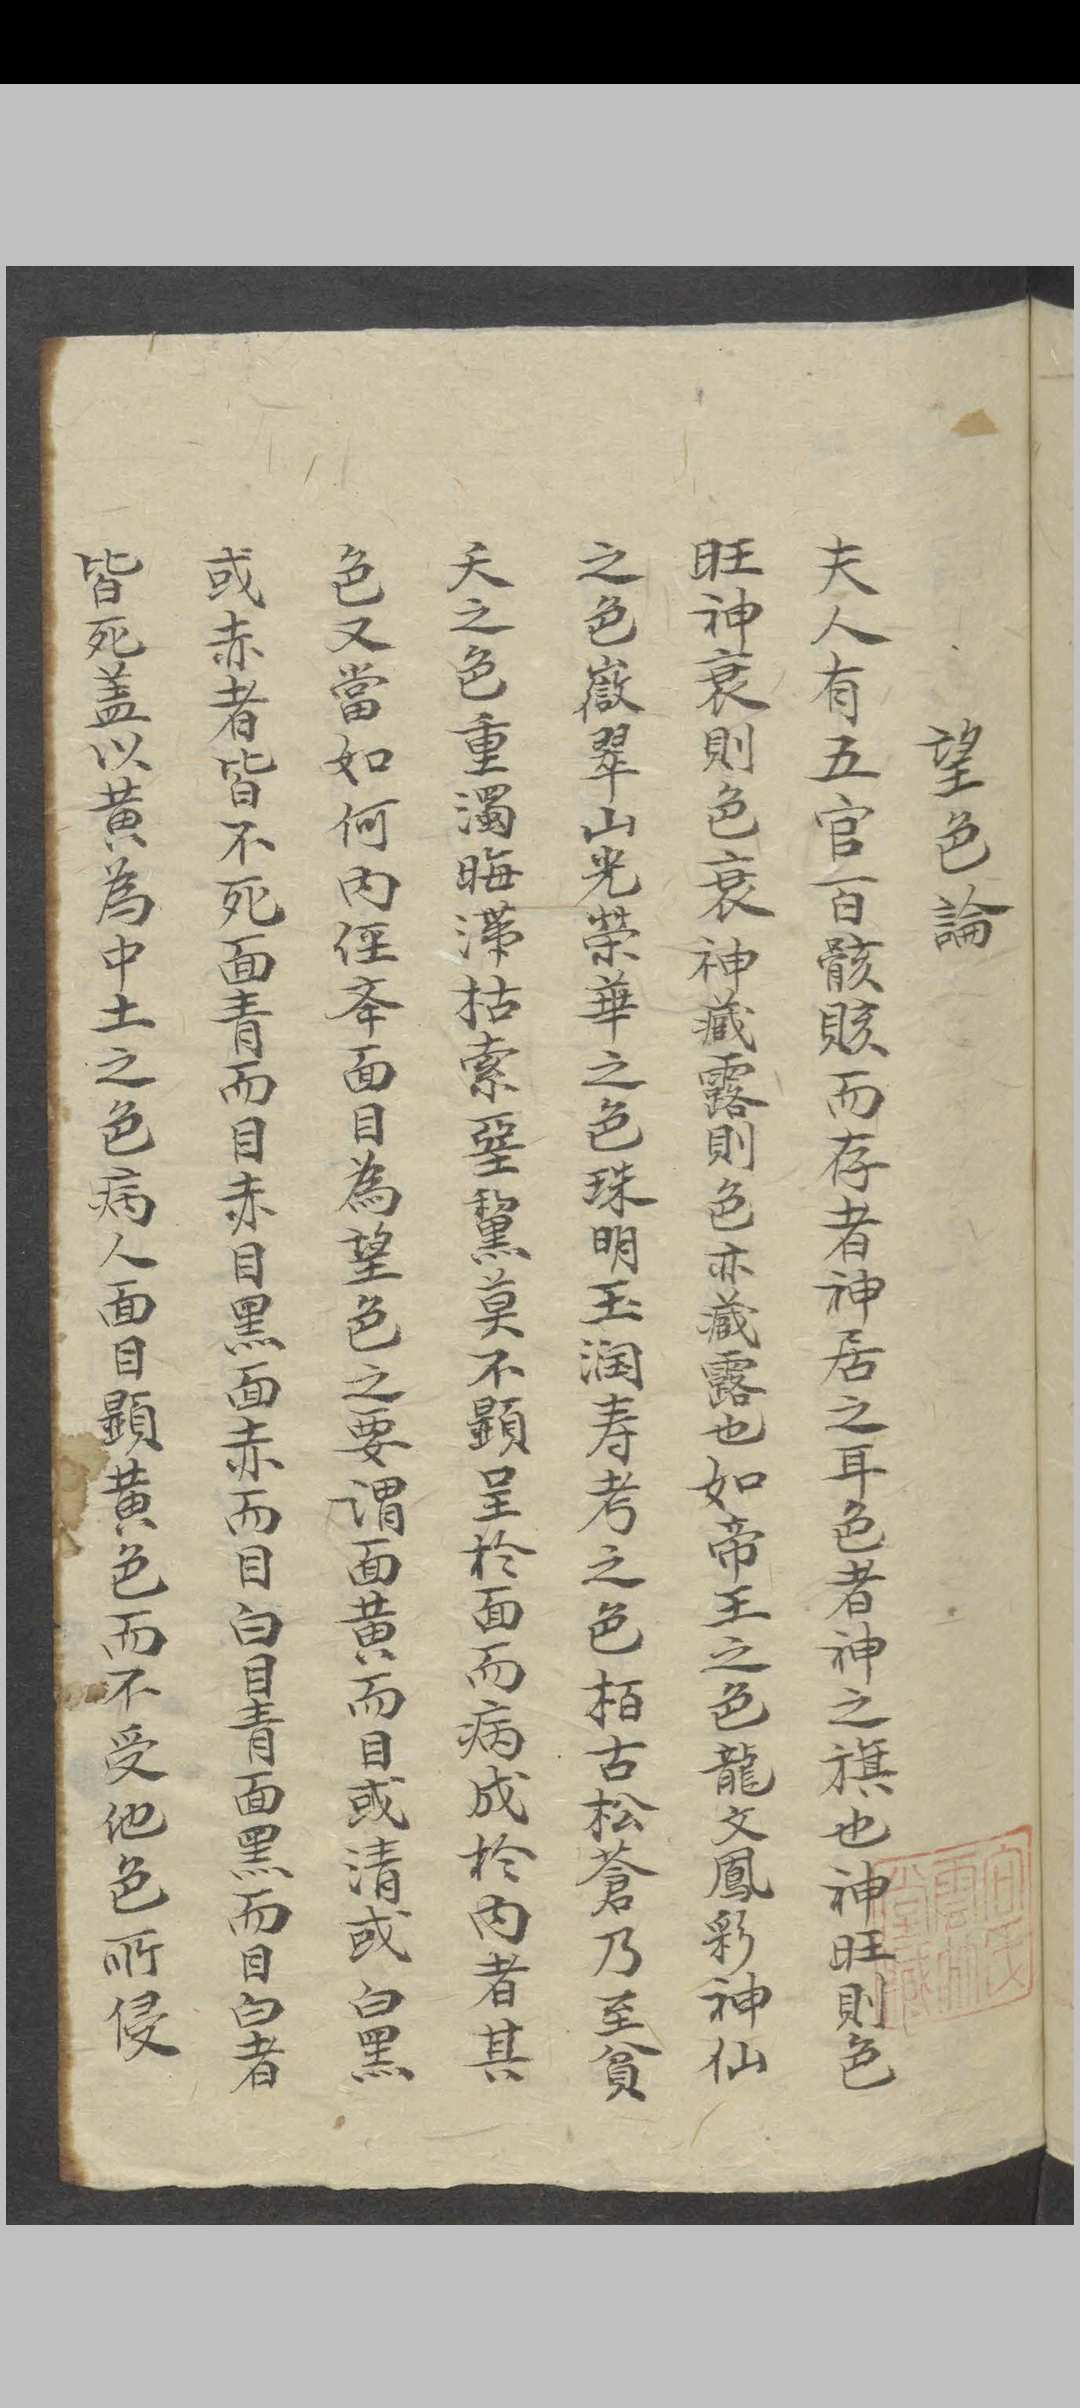 望色論
夫人有五官百骸賅而存者神居之耳色者神之旗也神旺則色
旺神衰則色衰神藏露則色亦藏露也如帝王之色龍文鳳彩神仙
之色嶽翠山光榮華之色珠明玉潤寿考之色栢古松蒼乃至貧
夭之色重濁晦滯枯索堊黧莫不顕呈於面而病成於內者其
色又當如何內經夲面目為望色之要謂面黄而目或清或白黑
或赤者皆不死面青而目赤目黑面赤而目白目青面黑而目白者
皆死盖以黄為中土之色病人面目顕黄色而不受他色所侵